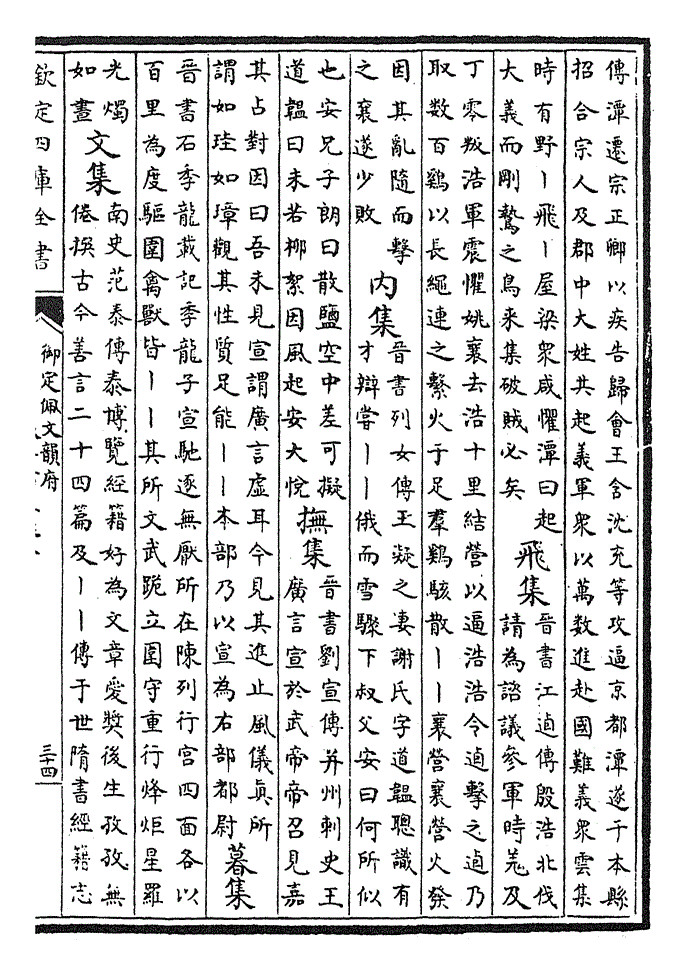 傳潭遷宗正卿以疾告歸會王含沈充等攻逼京都潭遂于本縣
招合宗人及郡中大姓共起義軍衆以萬數進赴國難義衆雲集
時有野丨飛丨屋梁衆咸懼潭曰起
大義而剛鷙之鳥來集破賊必矣
飛集
晉書江逌傳殷浩北伐
請為諮議參軍時羌及
丁零叛浩軍震懼姚襄去浩十里結營以逼浩浩令逌擊之逌乃
取數百鷄以長繩連之繫火于足羣鷄駭散丨丨襄營襄營火發
因其亂隨而擊
之襄遂少敗
内集
晉書列女傳王凝之妻謝氏字道韞聰識有
才辯嘗丨丨俄而雪驟下叔父安曰何所似
也安兄子朗曰散鹽空中差可擬
道韞曰未若柳絮因風起安大悅
撫集
晉書劉宣傳并州刺史王
廣言宣於武帝帝召見嘉
其占對因曰吾未見宣謂廣言虛耳今見其進止風儀真所
謂如珪如璋觀其性質足能丨丨本部乃以宣為右部都尉
暮集
晉書石季龍載記季龍子宣馳逐無厭所在陳列行宮四面各以
百里為度驅圍禽獸皆丨丨其所文武跪立圍守重行烽炬星羅
光燭
如晝
文集
南史范泰傳泰博覽經籍好為文章愛奬後生孜孜無
倦撰古今善言二十四篇及丨丨傳于世隋書經籍志
欽定四庫全書
御定佩文韻府
三十四